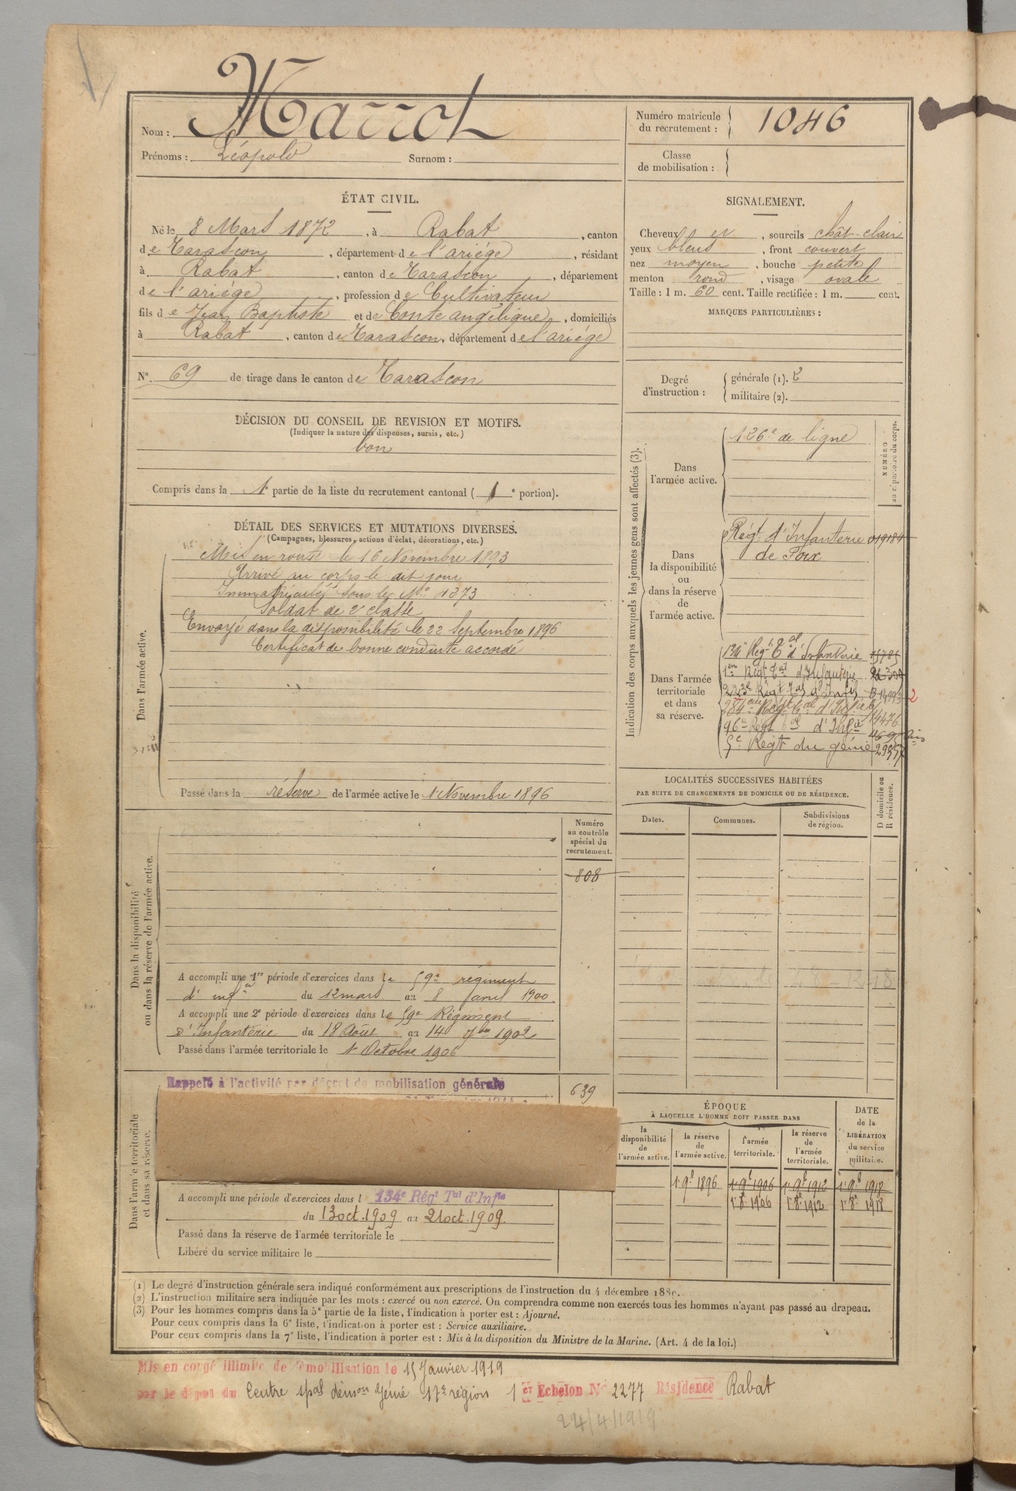 Nom : Marrot
Prénoms : Léopold Surnom :
Numéro matricule du recrutement : 1046
Classe de mobilisation :
ÉTAT CIVIL.
Né le 8 Mars 1872, à Rabat, canton
de Tarascon, département de l'ariége, résidant
à Rabat, canton de Tarascon, département
de l'ariége, profession de Cultivateur
fils de Jean Baptiste et de Conte angélique, domiciliés
à Rabat, canton de Tarascon, département de l'ariége
N° 69 de tirage dans le canton de Tarascon
SIGNALEMENT.
Cheveux et, sourcils chât-clair
yeux bleus, front couvert
nez moyen, bouche petite
menton rond, visage ovale
Taille : 1 m. 60 cent. Taille rectifiée : 1 m. cent.
MARQUES PARTICULIÈRES :
Degré d'instruction : générale (1). 2
militaire (2).
DÉCISION DU CONSEIL DE REVISION ET MOTIFS.
(Indiquer la nature des dispenses, sursis, etc.)
bon
Compris dans la 1e partie de la liste du recrutement cantonal (1e portion).
DÉTAIL DES SERVICES ET MUTATIONS DIVERSES.
(Campagnes, blessures, actions d'éclat, décorations, etc.)
Dans l'armée active.
Mis en route le 16 Novembre 1893
Arrivé au corps le dit jour
Immatriculé sous le N° 1373
Soldat de 2e classe
Envoyé dans la disponibilité le 22 Septembre 1896
Certificat de bonne conduite accordé
Passé dans la réserve de l'armée active le 1 Novembre 1896
Indication des corps auxquels les jeunes gens sont affectés (3).
NUMÉRO
Dans l'armée active.
126e de ligne
Dans la disponibilité ou dans la réserve de l'armée active.
Régt d'Infanterie
de Foix
Dans l'armée territoriale et dans sa réserve.
134e Régt Tal d'Infanterie
1er Régt Tal d'Infanterie
96e Régt Tal d'Infie
5e Régt du génie
LOCALITÉS SUCCESSIVES HABITÉES
PAR SUITE DE CHANGEMENTS DE DOMICILE OU DE RÉSIDENCE.
Dates. Communes. Subdivisions de région. D domicile ou R résidence.
Dans la disponibilité
ou dans la réserve de l'armée active.
Numéro au contrôle spécial du recrutement.
808
A accompli une 1re période d'exercices dans le 59e régiment
d'infie du 12 mars au 8 1900
A accompli une 2e période d'exercices dans le 59e Régiment
d'Infanterie du 18 Août au 14 7bre 1902
Passé dans l'armée territoriale le 1 Octobre 1906
Dans l'armée territoriale et dans sa réserve.
Rappelé à l'activité par décret de mobilisation générale
639
A accompli une période d'exercices dans l 134e Régt Tal d'Infie
du 13 oct. 1909 au 21 oct. 1909.
Passé dans la réserve de l'armée territoriale le
Libéré du service militaire le
ÉPOQUE
À LAQUELLE L'HOMME DOIT PASSER DANS
la disponibilité de l'armée active. la réserve de l'armée active. l'armée territoriale. la réserve de l'armée territoriale.
DATE de la LIBÉRATION du service militaire.
1 9b 1896 1 9b 1906 1 9b 1912 1 9b 1918
1 8b 1906 1 8b 1912 1 8b 1918
(1) Le degré d'instruction générale sera indiqué conformément aux prescriptions de l'instruction du 4 décembre 1889.
(2) L'instruction militaire sera indiquée par les mots : exercé ou non exercé. On comprendra comme non exercés tous les hommes n'ayant pas passé au drapeau.
(3) Pour les hommes compris dans la 5e partie de la liste, l'indication à porter est : Ajourné.
Pour ceux compris dans la 6e liste, l'indication à porter est : Service auxiliaire.
Pour ceux compris dans la 7e liste, l'indication à porter est : Mis à la disposition du Ministre de la Marine. (Art. 4 de la loi.)
Mis en congé illimité de démobilisation le 15 Janvier 1919
par le dépôt du Centre spal démon génie 17e région 1er Echelon N° 2277 Résidence Rabat
24/4/1919